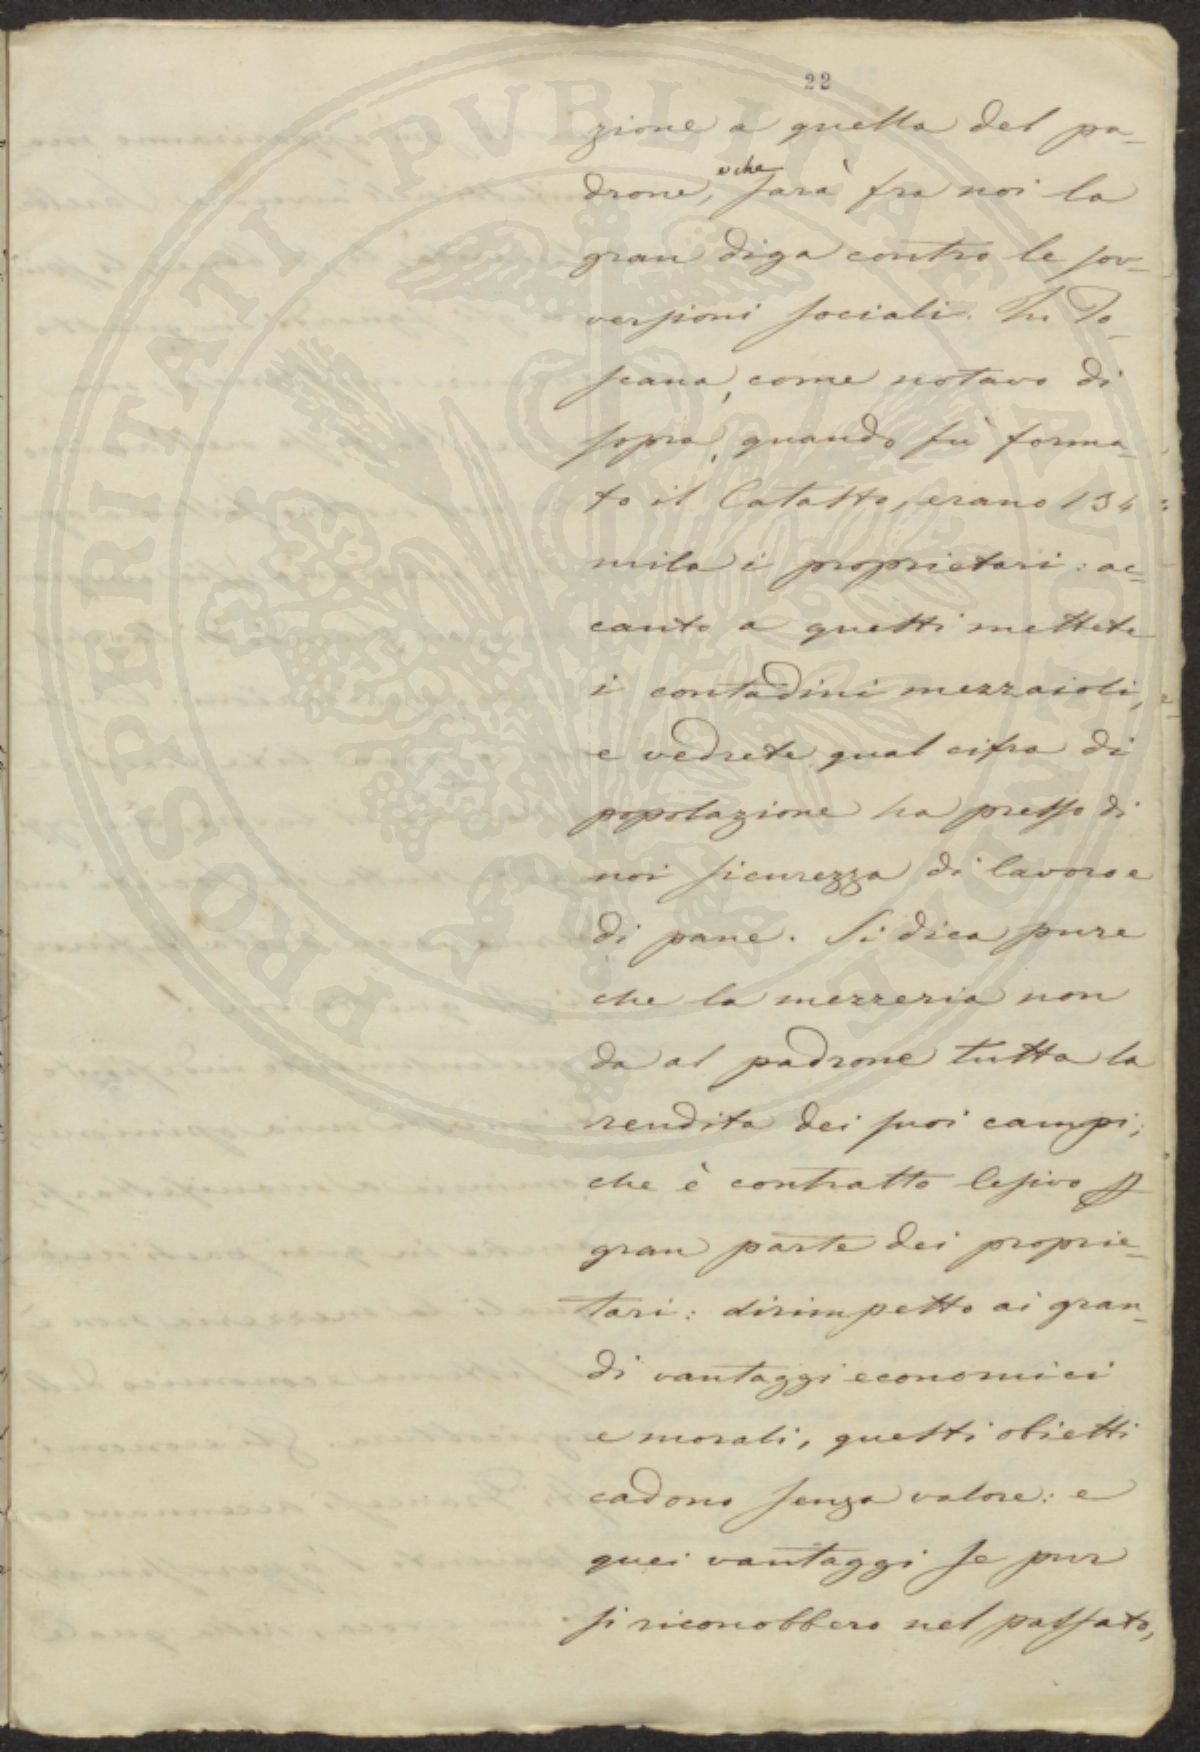 22
zione a quella del pa-
drone, e che sarà fra noi la
gran diga contro le sov-
versioni sociali. In To-
scana, come notavo di
sopra, quando fù forma-
to il Catasto, erano 134
mila i proprietari: ac-
canto a questi mettete
i contadini mezzaioli,
e vedrete qual cifra di
popolazione ha presso di
noi sicurezza di lavoro e
di pane. Si dica pure
che la mezzeria non
da al padrone tutta la
rendita dei suoi campi;
che è contratto lesivo p
gran parte dei proprie-
tari: dirimpetto ai gran-
di vantaggi economici
e morali, questi obietti
cadono senza valore: e
quei vantaggi se pur
si riconobbero nel passato,
PROSPERITATI PVBLICAE AVGENDAE